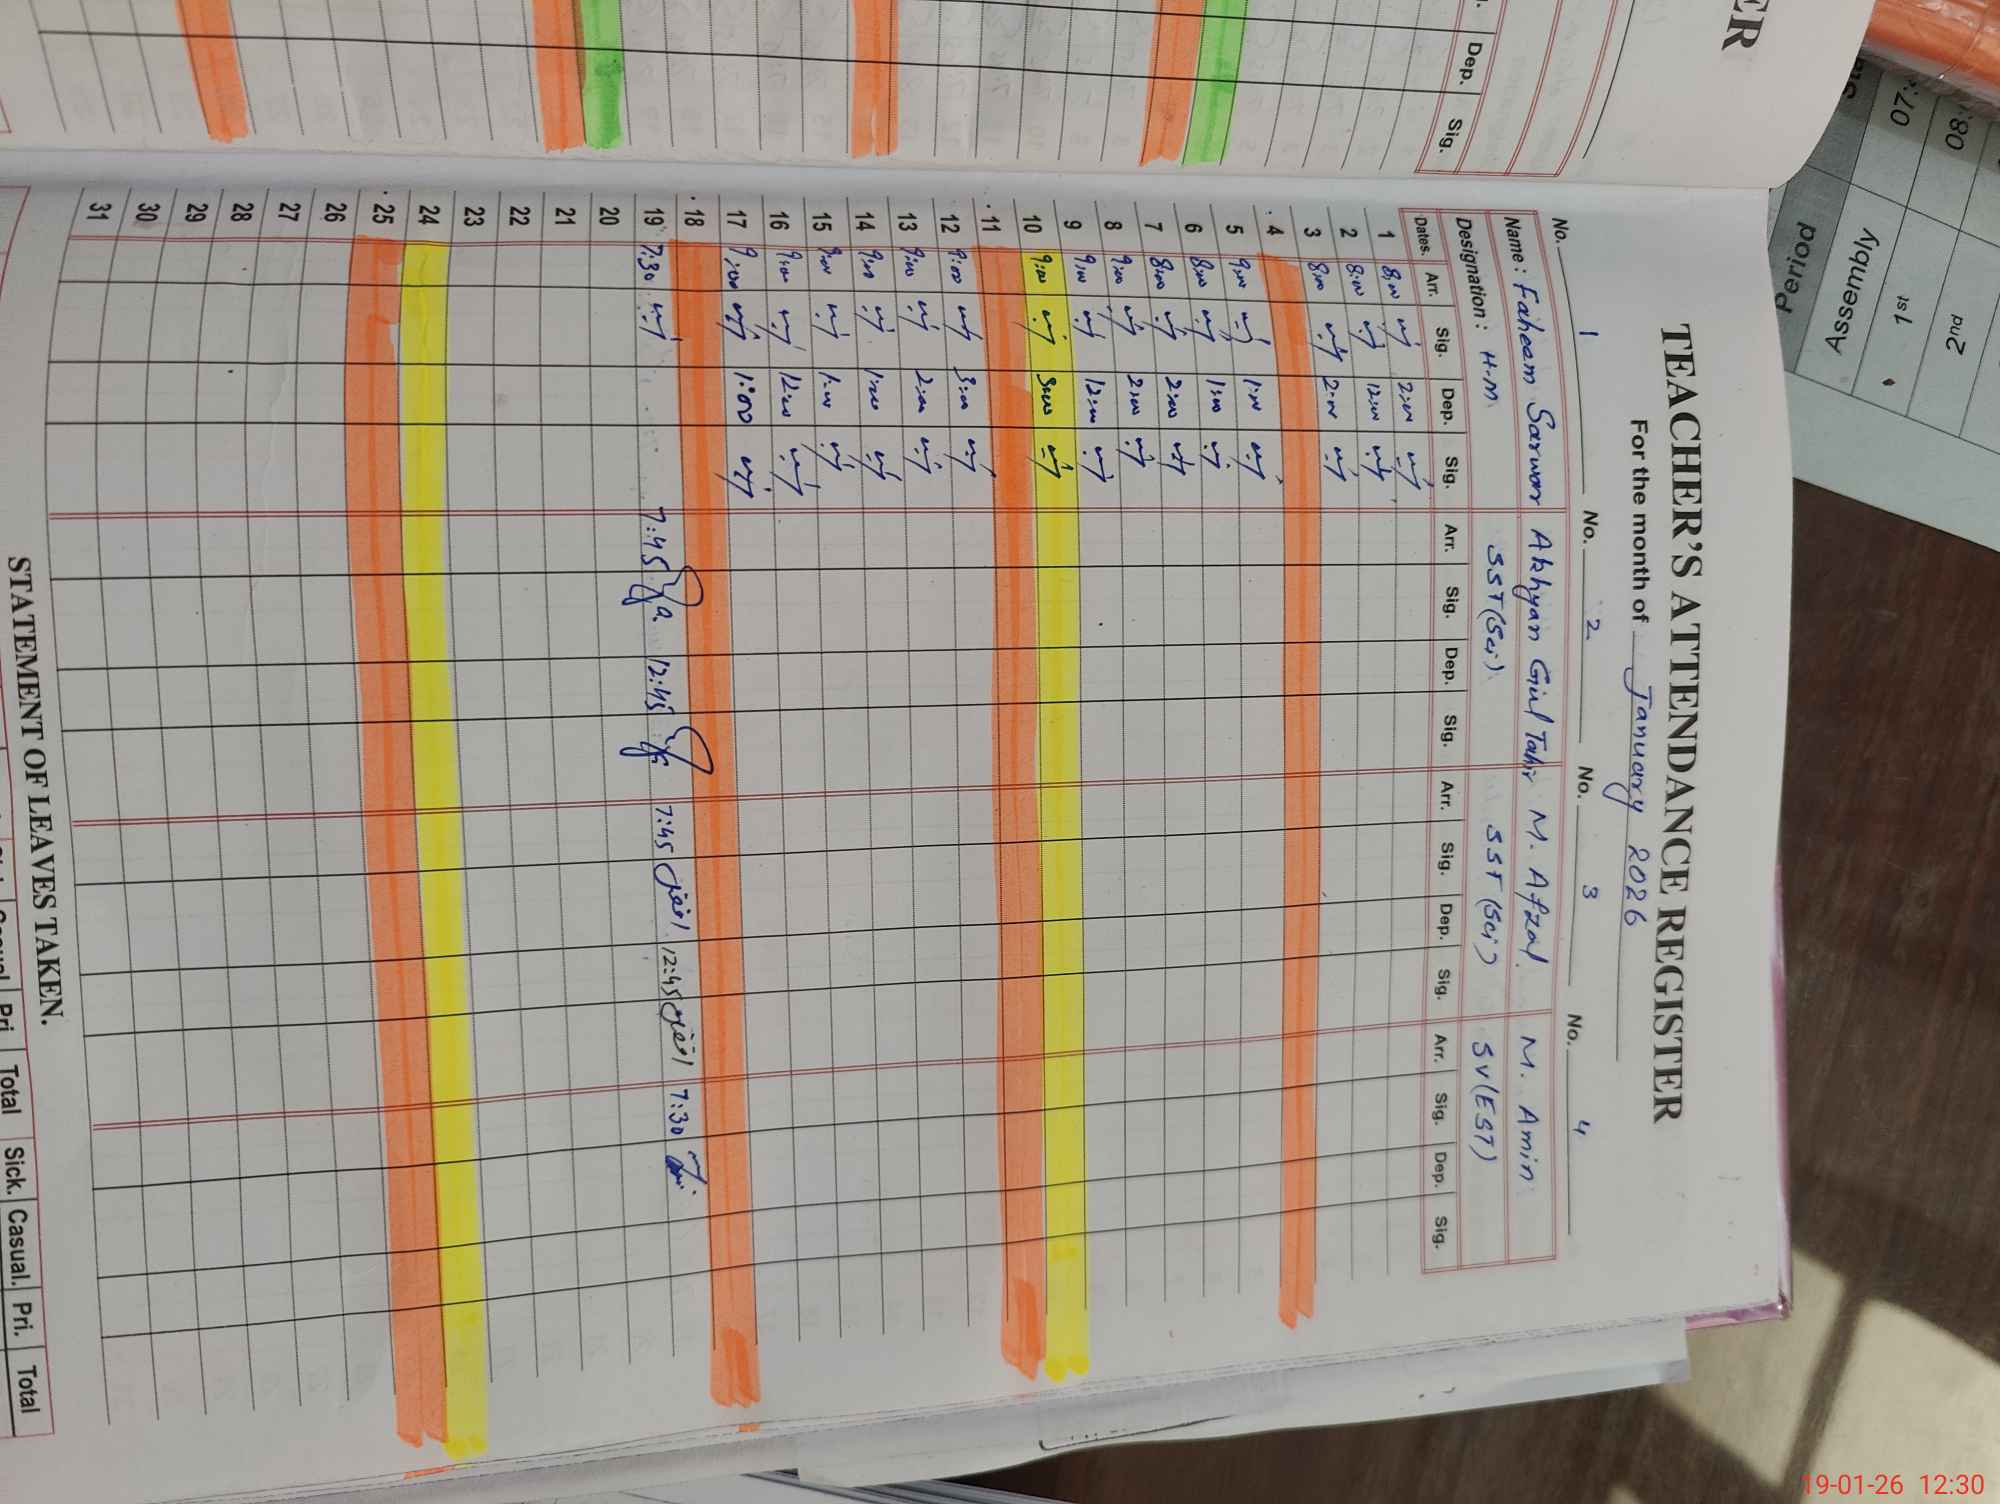 ER
Dep. Sig.
TEACHER'S ATTENDANCE REGISTER
For the month of January 2026
No. 1 No. 2 No. 3 No. 4
Name: Faheem Sarwar Akhyan Gul Tahir M. Afzal M. Amin
Designation: H-M SST(Sci) SST(Sci) SV(EST)
Dates. Arr. Sig. Dep. Sig. Arr. Sig. Dep. Sig. Arr. Sig. Dep. Sig. Arr. Sig. Dep. Sig.
1 8:00 2:00
2 8:00 12:00
3 8:00 2:00
4
5 9:00 1:00
6 8:00 1:00
7 8:00 2:00
8 9:00 2:00
9 9:00 12:00
10 9:00 3:00
11
12 9:00 3:00
13 9:00 2:00
14 9:00 1:00
15 9:00 1:00
16 9:00 12:00
17 9:00 1:00
18
19 7:30 7:45 12:45 7:45 افضل 12:45 افضل 7:30
20
21
22
23
24
25
26
27
28
29
30
31
STATEMENT OF LEAVES TAKEN.
Pri. Total Sick. Casual. Pri. Total
Period
Assembly
1st
2nd
07:
08:
19-01-26 12:30